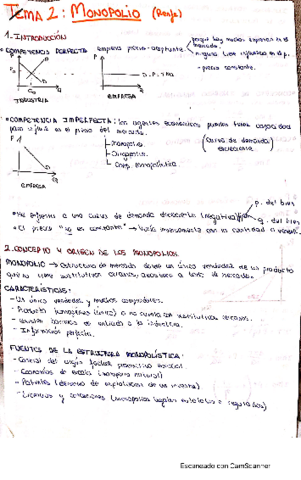 TEMA 2: MONOPOLIO
1. INTRODUCCIÓN
• COMPETENCIA PERFECTA empresa precio-aceptante
porque hay muchas empresas en el mercado.
- precio constante.
P
Q
INDUSTRIA
EMPRESA
• COMPETENCIA IMPERFECTA: los agentes económicos pueden tener capacidad
para influir en el precio del mercado.
Monopolio.
Oligopolio.
Comp. monopolística.
(Curva de demanda decreciente)
EMPRESA
p. del bien
q. del bien
• Se enfrenta a una curva de demanda decreciente (negativa)
• El precio "no es constante" → Varía inversamente con la cantidad
2. CONCEPTO Y ORIGEN DE LOS MONOPOLIOS
MONOPOLIO → Estructura de mercado donde un único vendedor de un producto
que no tiene sustitutivos cercanos, abastece a todo el mercado.
CARACTERÍSTICAS:
- Un único vendedor y muchos compradores.
- Producto homogéneo (único) o no cuenta con sustitutivos cercanos.
- barreras de entrada a la industria.
- Información perfecta.
FUENTES DE LA ESTRUCTURA MONOPOLÍSTICA:
- Control del factor productivo
- Economías de escala (monopolio natural)
- Patentes (derecho de explotación de un invento)
- Licencias y concesiones (monopolios legales estatales o regulados)
Escaneado con CamScanner